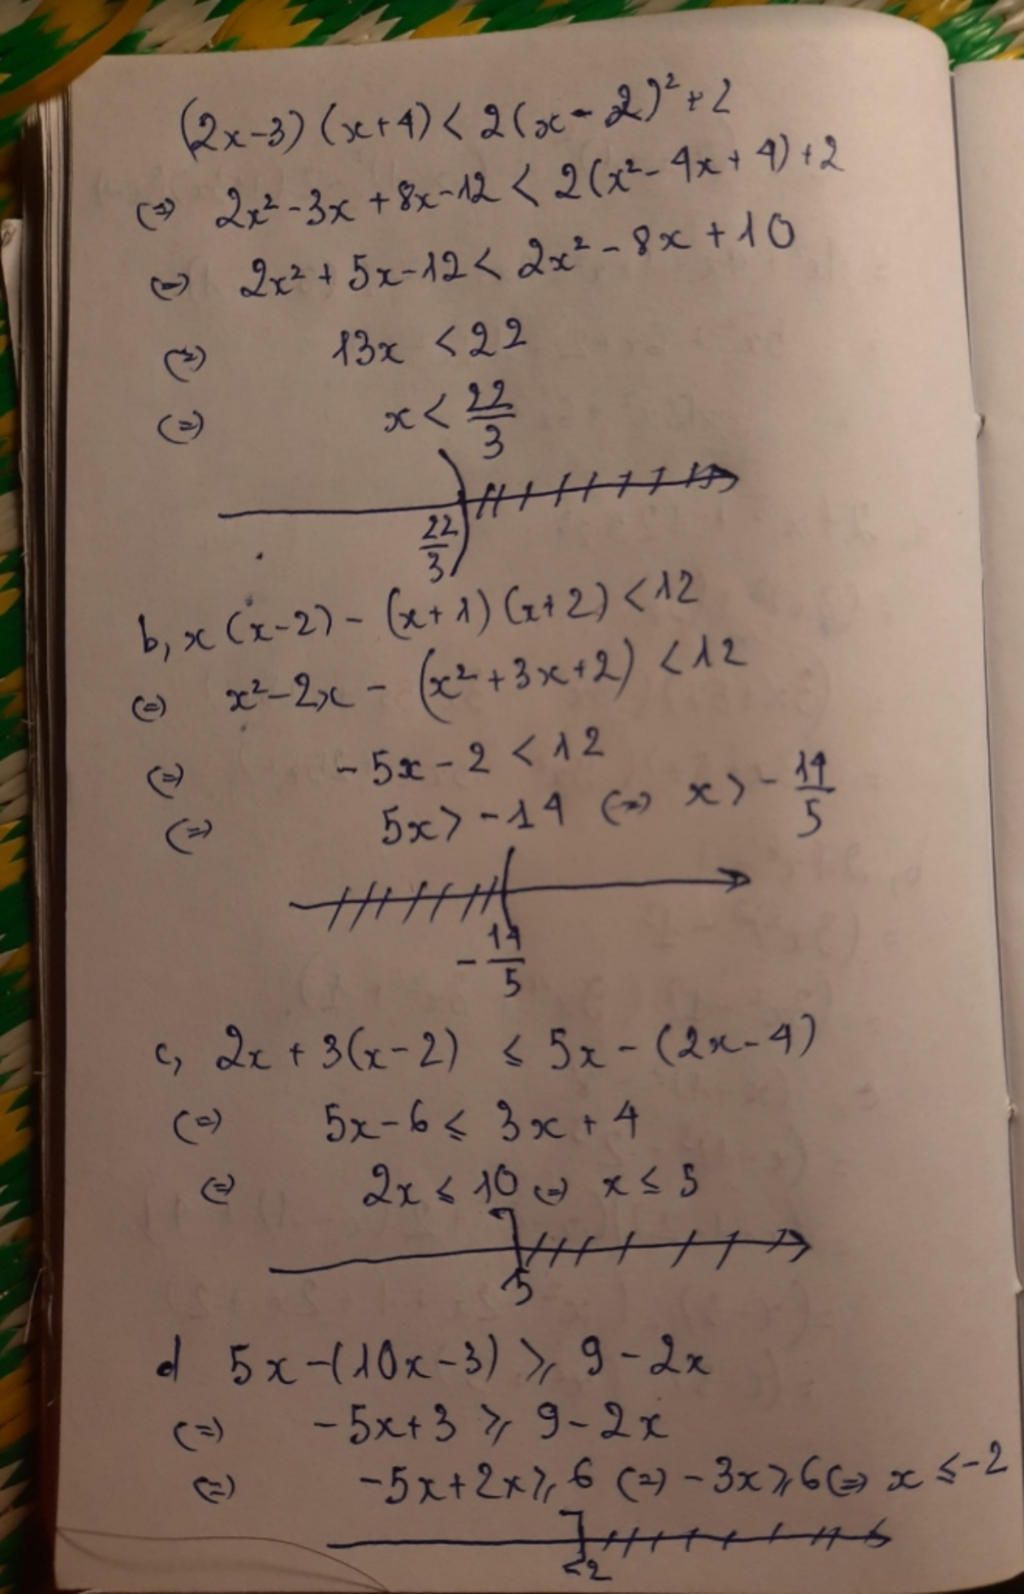 (2x-3)(x+4) < 2(x-2)²+2
(=) 2x²-3x+8x-12 < 2(x²-4x+4)+2
(=) 2x²+5x-12 < 2x²-8x+10
(=) 13x < 22
(=) x < 22/3
22/3
b, x(x-2)-(x+1)(x+2) < 12
(=) x²-2x-(x²+3x+2) < 12
(=) -5x-2 < 12
(=) 5x > -14 (=) x > -14/5
-14/5
c, 2x+3(x-2) ≤ 5x-(2x-4)
(=) 5x-6 ≤ 3x+4
(=) 2x ≤ 10 (=) x ≤ 5
5
d 5x-(10x-3) ≥ 9-2x
(=) -5x+3 ≥ 9-2x
(=) -5x+2x ≥ 6 (=) -3x ≥ 6 (=) x ≤ -2
-2